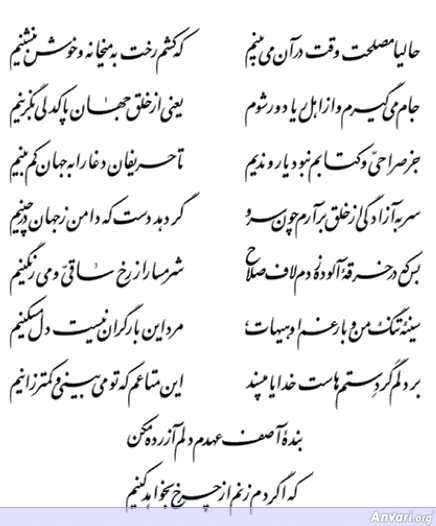 حالیا مصلحت وقت در آن می بینم که کشم رخت به میخانه و خوش بنشینم
جام می گیرم و از اهل ریا دور شوم یعنی از خلق جهان پاکدلی بگزینم
جز صراحی و کتابم نبود یار و ندیم تا حریفان دغا را به جهان کم بینم
سر به آزادگی از خلق برآرم چون سرو گر دهد دست که دامن ز جهان درچینم
بس که در خرقه آلوده زدم لاف صلاح شرمسار از رخ ساقی و می رنگینم
سینه تنگ من و بار غم او هیهات مرد این بار گران نیست دل مسکینم
بر دلم گرد ستم هاست خدایا مپسند
این متاعم که تو می بینی و کمتر زانم
بنده آصف عهدم دلم آزرده مکن
که اگر دم زنم از چرخ بخواهد کینم
Anvari.org